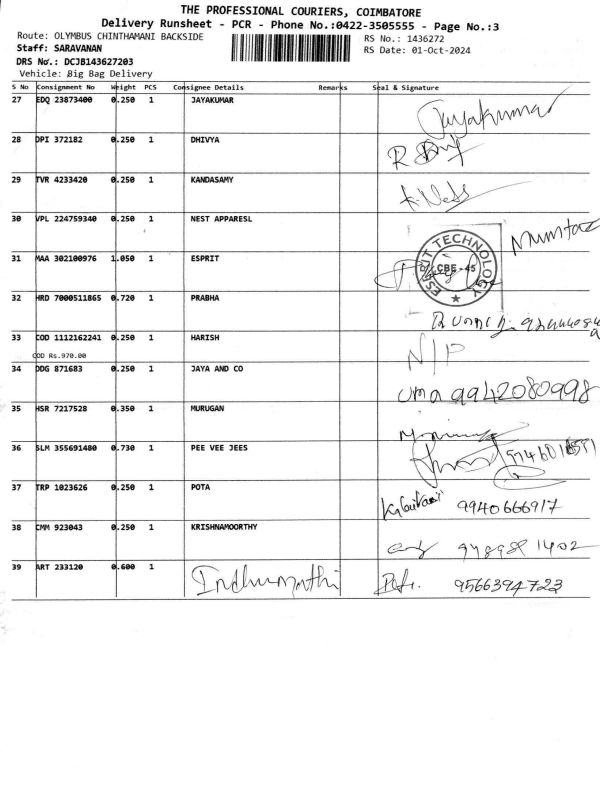 THE PROFESSIONAL COURIERS, COIMBATORE
Delivery Runsheet - PCR - Phone No.:0422-3505555 - Page No.:3
Route: OLYMBUS CHINTHAMANI BACKSIDE
RS No.: 1436272
Staff: SARAVANAN
RS Date: 01-Oct-2024
DRS No.: DCJB143627203
Vehicle: Big Bag Delivery
S No Consignment No Weight PCS Consignee Details Remarks Seal & Signature
27 EDQ 23873400 0.250 1 JAYAKUMAR Jayakumar
28 DPI 372182 0.250 1 DHIVYA
29 TVR 4233420 0.250 1 KANDASAMY
30 VPL 224759340 0.250 1 NEST APPARESL Mumtaz
31 MAA 302100976 1.050 1 ESPRIT
ESPRIT TECHNOLOGY
CBE - 45
32 HRD 7000511865 0.720 1 PRABHA
33 COD 1112162241 0.250 1 HARISH N/P
COD Rs.970.00
34 DDG 871683 0.250 1 JAYA AND CO uma 9942080998
35 HSR 7217528 0.350 1 MURUGAN
36 SLM 355691480 0.730 1 PEE VEE JEES
37 TRP 1023626 0.250 1 POTA 9940666917
38 CMM 923043 0.250 1 KRISHNAMOORTHY
39 ART 233120 0.600 1 Indhumathi 9566394723